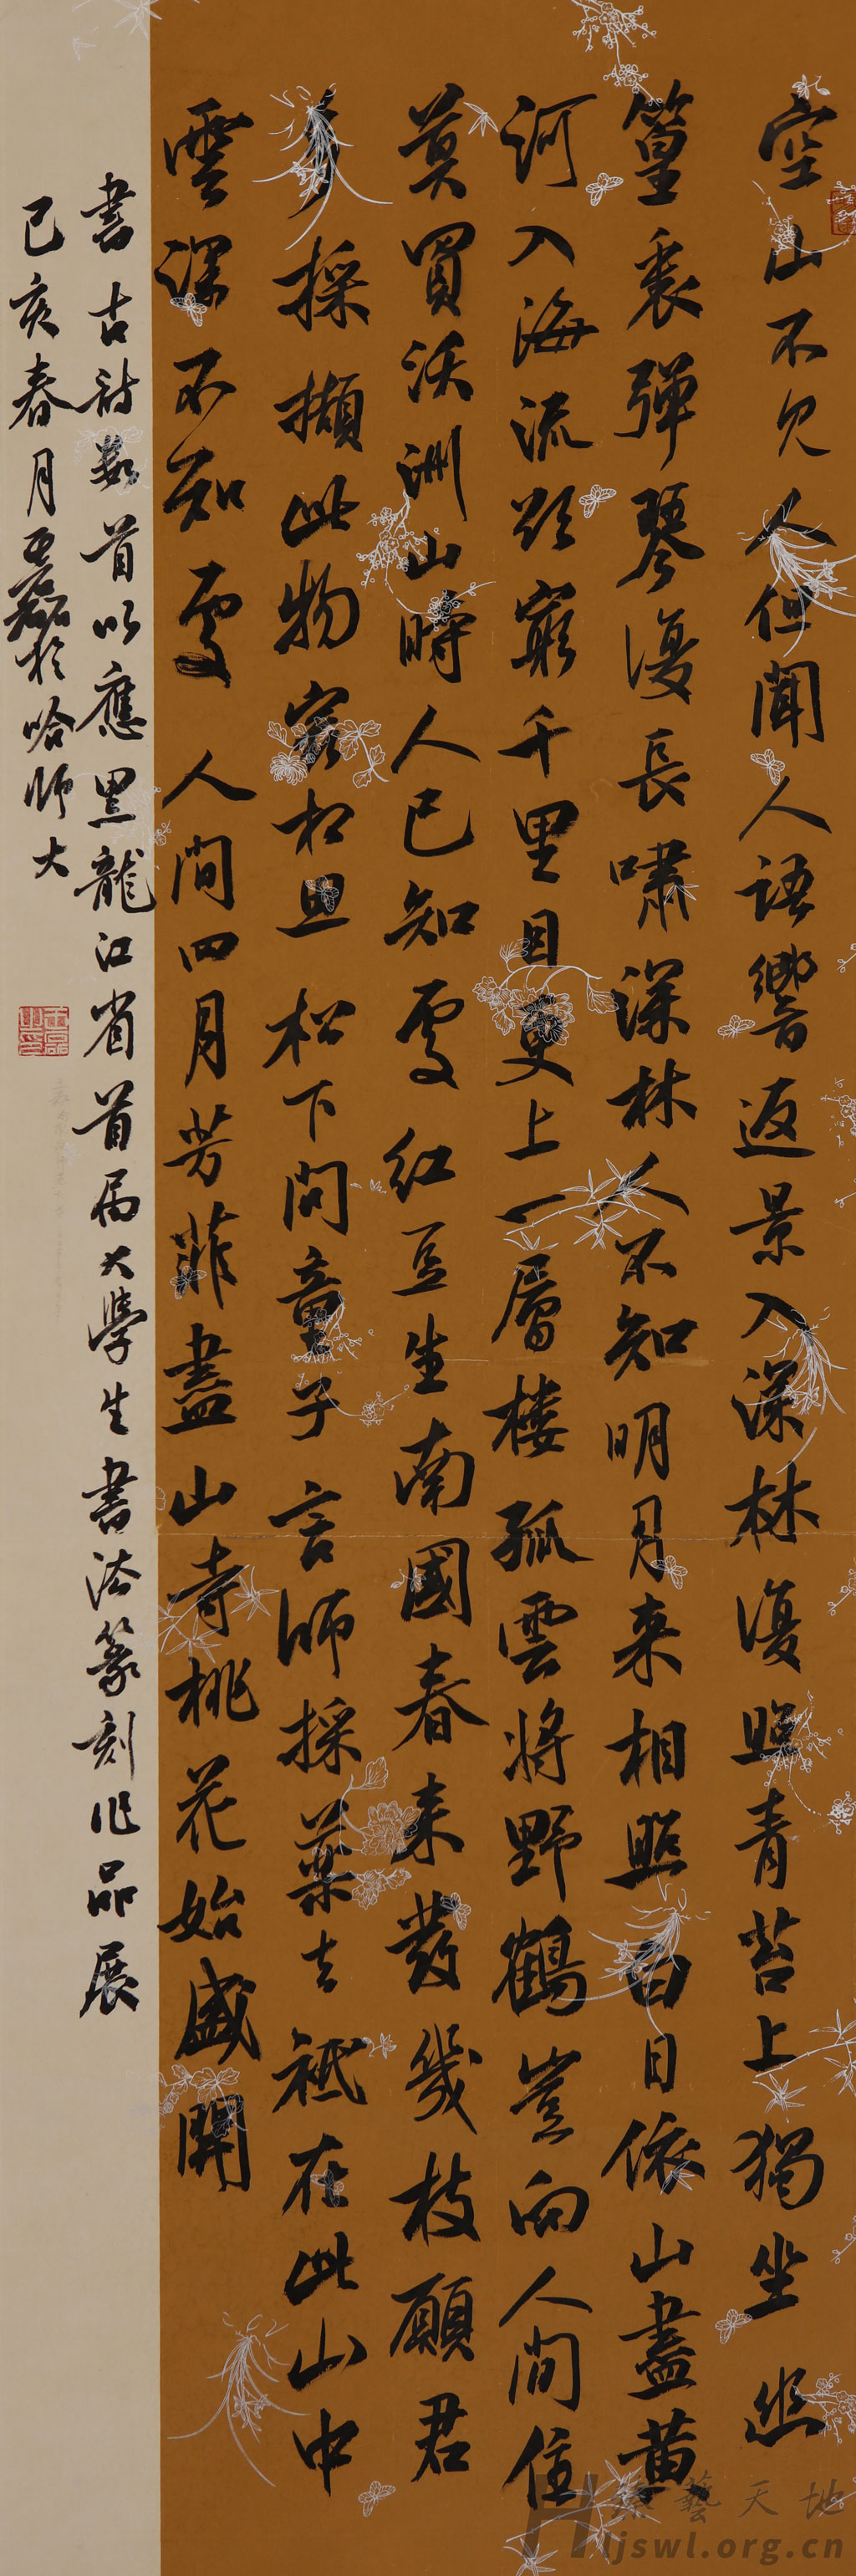 空山不見人但聞人語響返景入深林復照青苔上獨坐幽
篁裏彈琴復長嘯深林人不知明月来相照白日依山盡黄
河入海流欲窮千里目更上一層楼孤雲将野鶴豈向人間住
莫買沃洲山時人已知處紅豆生南國春来發幾枝願君
多採擷此物最相思松下問童子言師採藥去祗在此山中
雲深不知處人間四月芳菲盡山寺桃花始盛開
書古詩數首以應黑龍江省首届大學生書法篆刻作品展
己亥春月王磊於哈師大
藝天地
Hljswl.org.cn